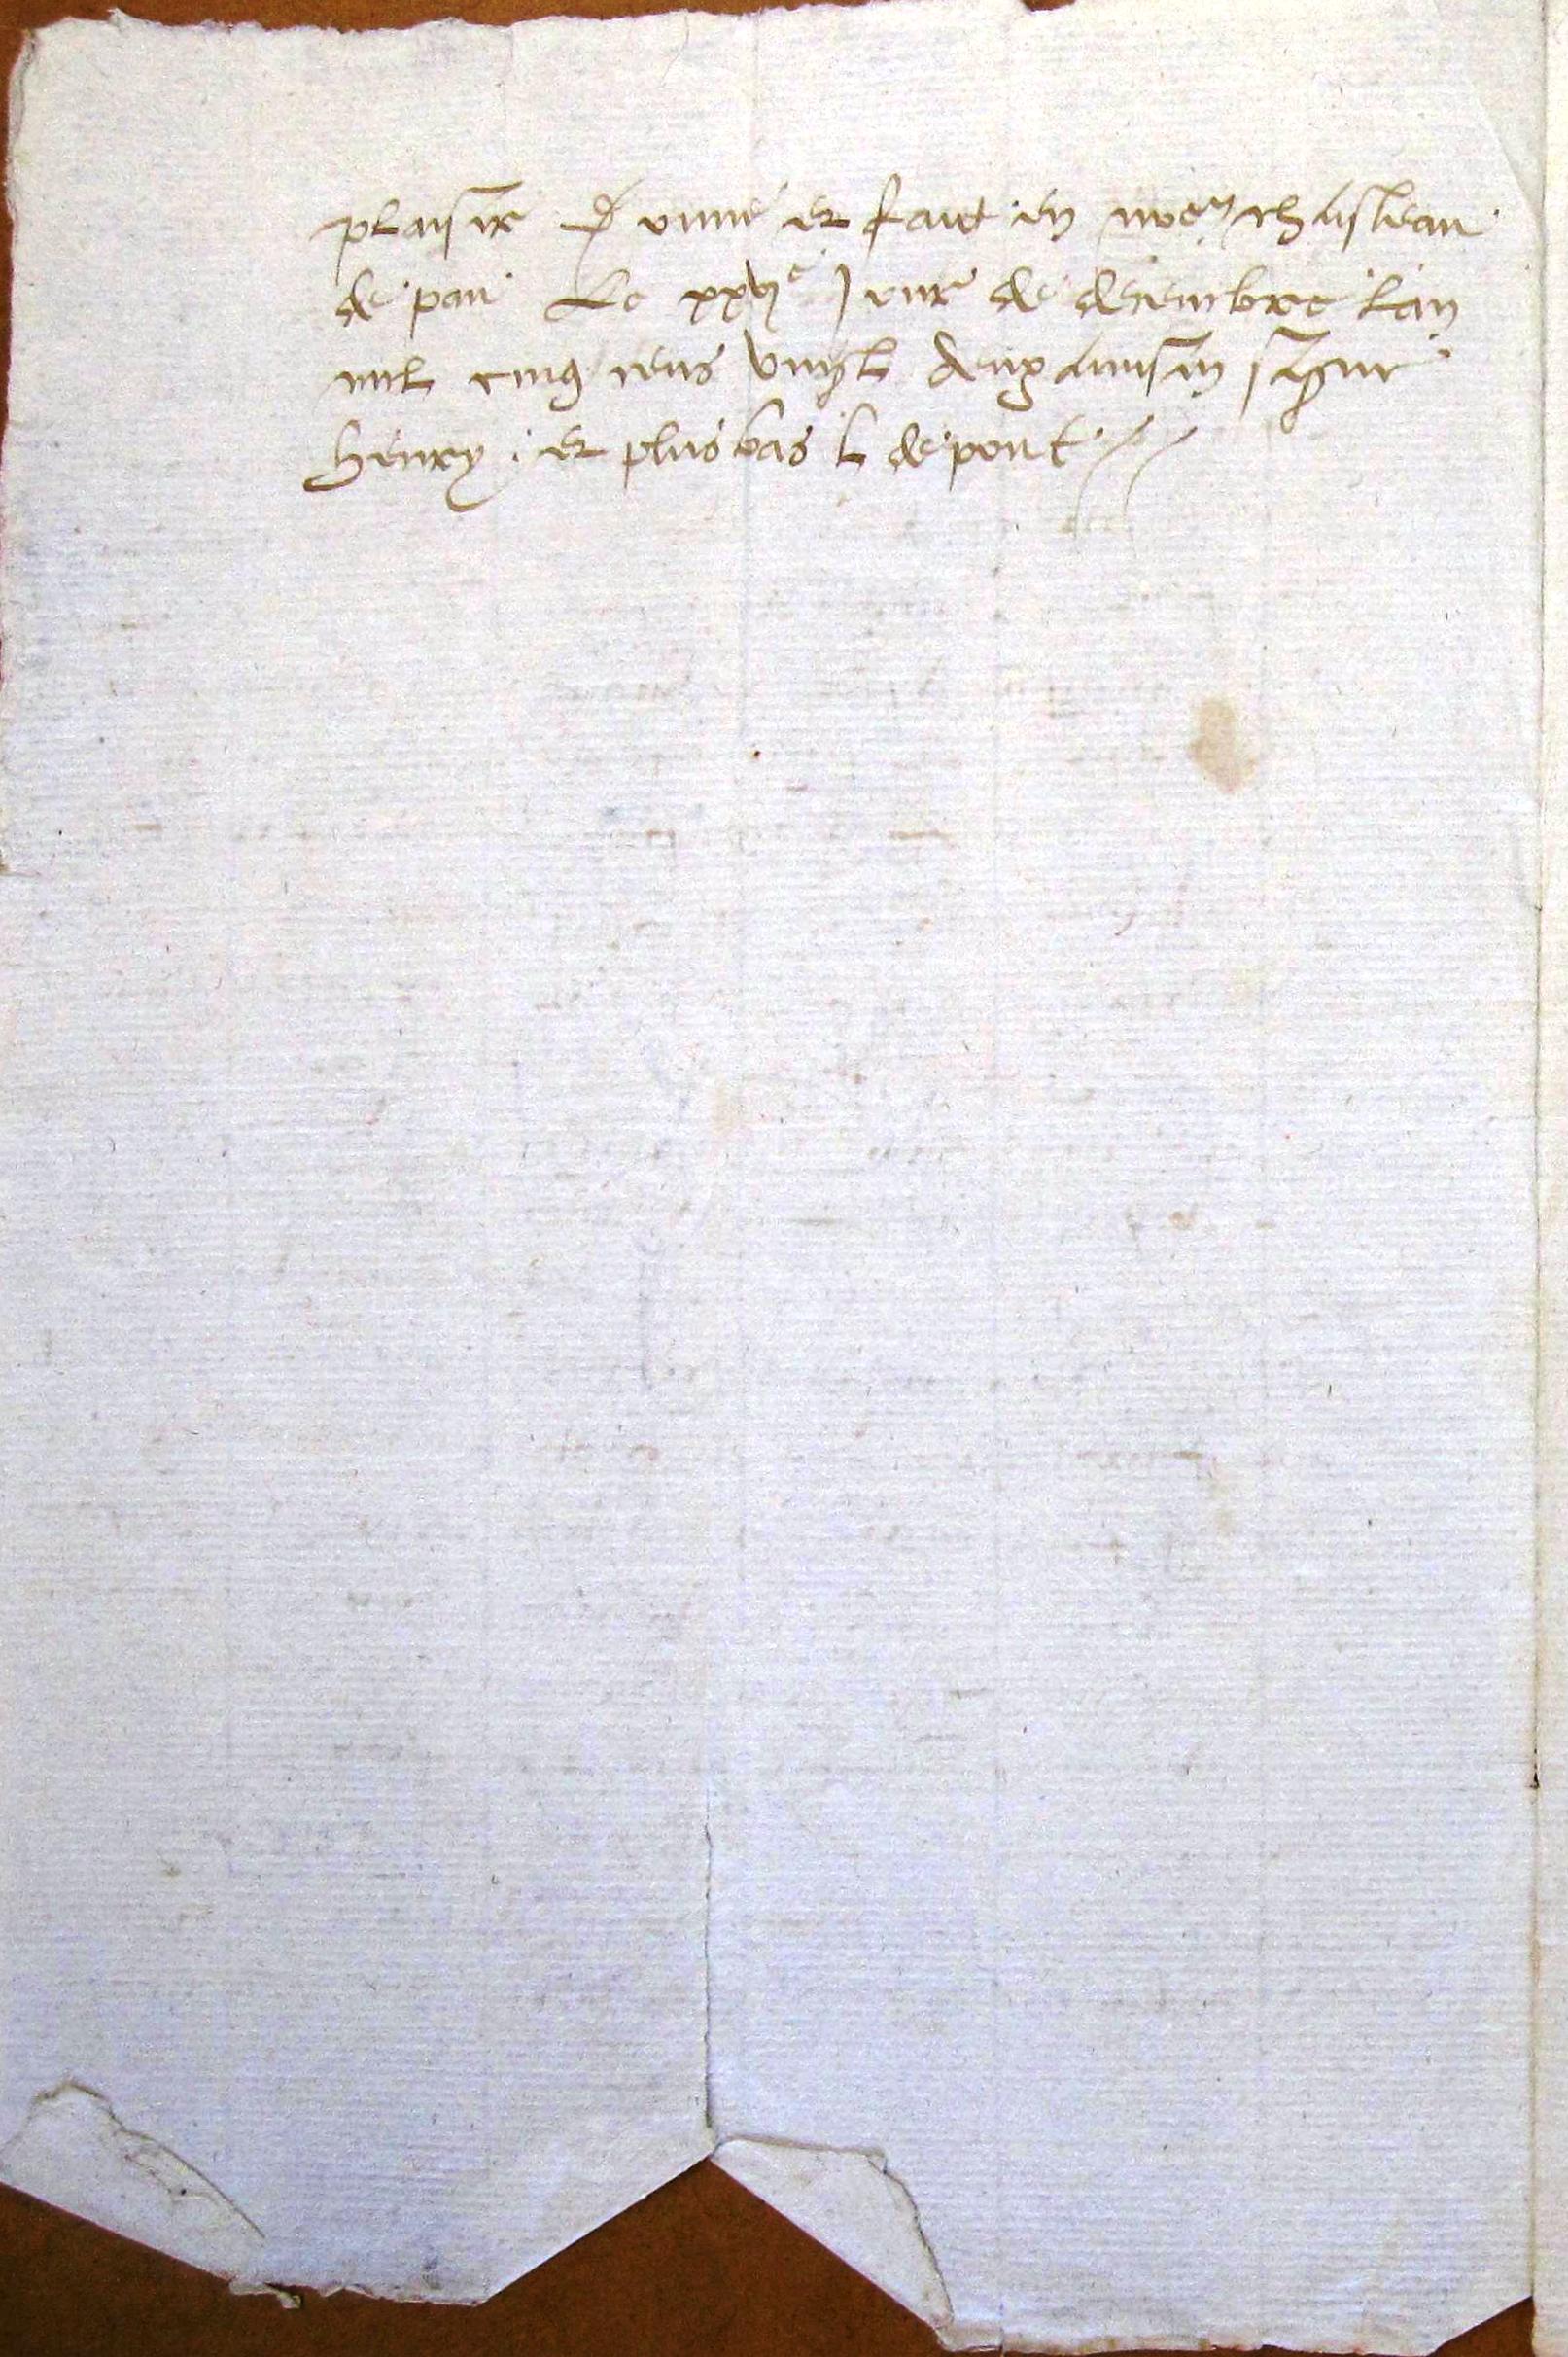 plaisir Donné et faict en nre chasteau
de pau Le xxvj^e Jour de decembre l'an
mil cinq cens vingt deux ainsin signé
henry : et plus bas l de pont //